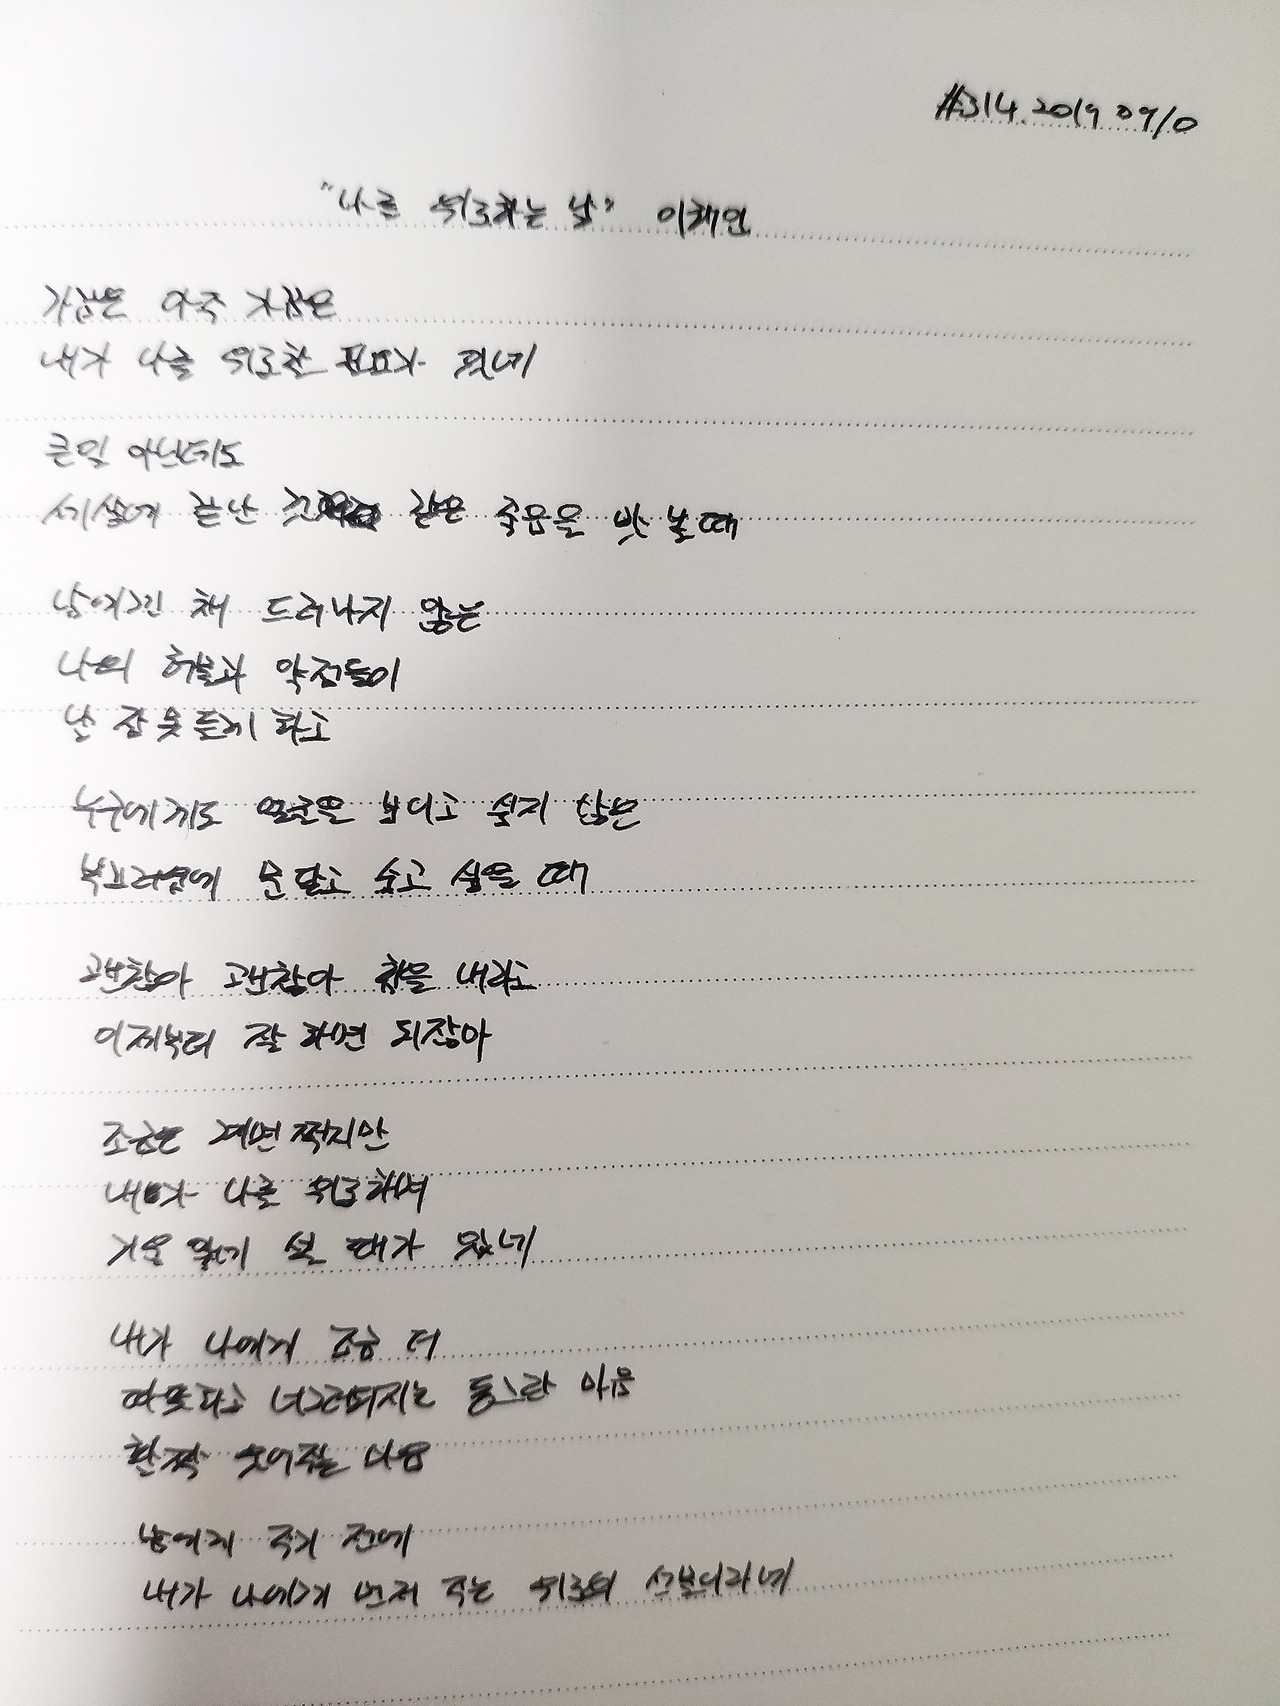 #314. 2019 09/0
"나를 위로하는 날" 이해인
가끔은 아주 가끔은
내가 나를 위로할 필요가 있네
큰일 아닌데도
세상에 끝난 것 같은 죽음을 맛 볼 때
남에겐 채 드러나지 않은
나의 허물과 약점들이
날 잠 못 들게 하고
누구에게도 얼굴을 보이고 싶지 않은
부끄러움에 문 닫고 숨고 싶을 때
괜찮아 괜찮아 힘을 내라고
이제부터 잘 하면 되잖아
조금은 계면쩍지만
내가 나를 위로하며
거울 앞에 설 때가 있네
내가 나에게 조금 더
따뜻하고 너그러워지는 동그란 마음
활짝 웃어주는 마음
남에게 주기 전에
내가 나에게 먼저 주는 위로의 선물이라네